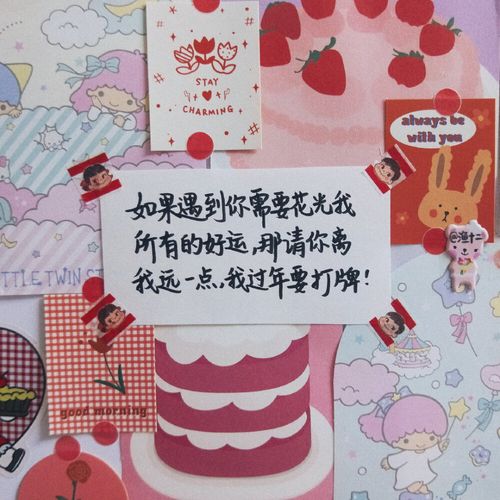 STAY
CHARMING
always be
with you
@渔十二
如果遇到你需要花光我
所有的好运,那请你离
我远一点,我过年要打牌!
LITTLE TWIN ST
good morning